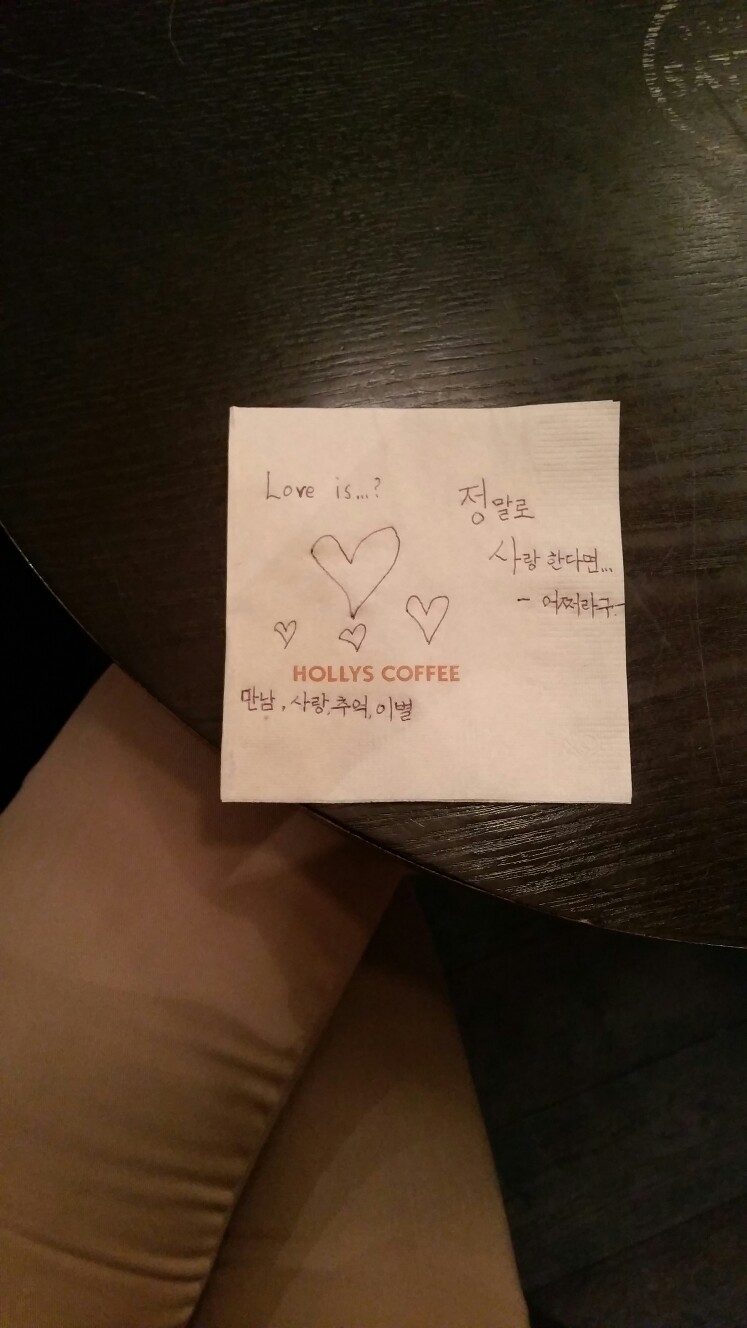 Love is...?
정말로
사랑한다면...
- 어쩌라구 -
HOLLYS COFFEE
만남, 사랑, 추억, 이별